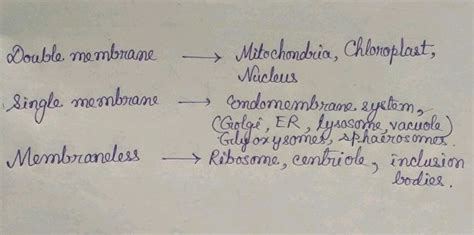 Double membrane → Mitochondria, Chloroplast,
Nucleus
Single membrane → Endomembrane system,
(Golgi, ER, lysosome, vacuole)
Glyoxysomes, sphaerosomes.
Membraneless → Ribosome, centriole, inclusion
bodies.